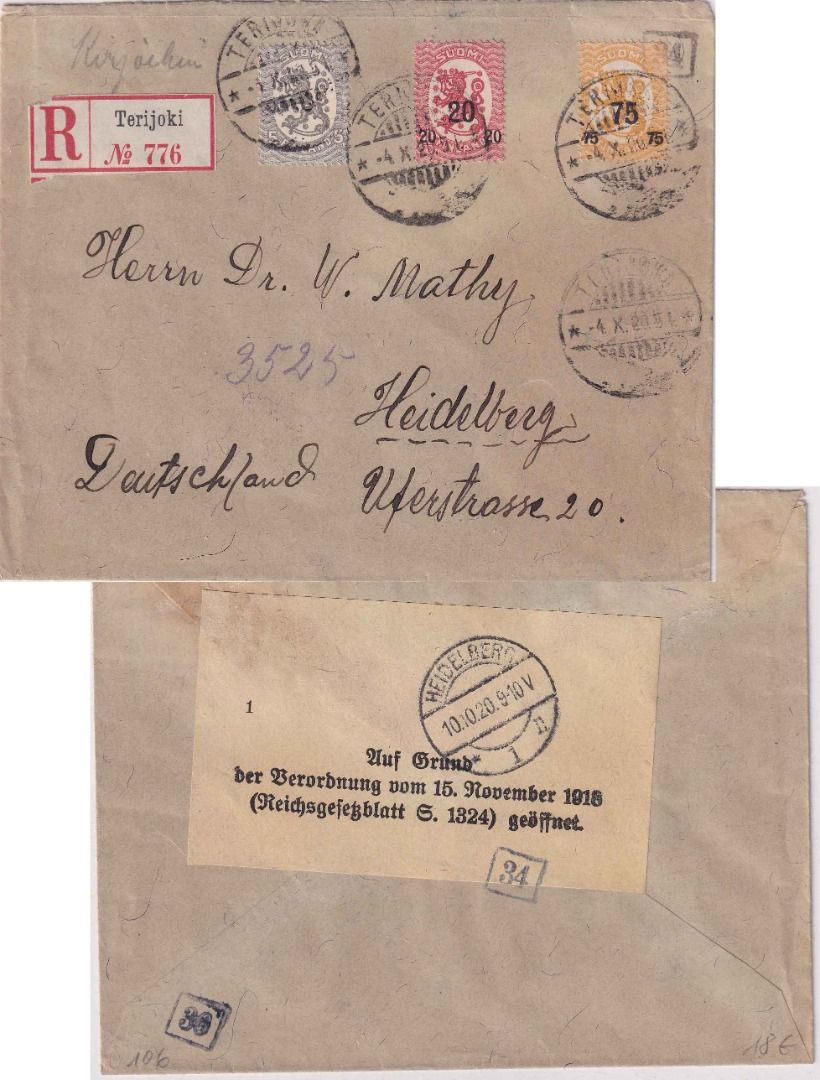 TERIJOKI
SUOMI
SUOMI
SUOMI
20
20 20
75
75 75
R
Terijoki
№ 776
TERIJOKI
-4.X.20
TERIJOKI
-4.X.20
TERIJOKI
-4.X.20
Herrn Dr. W. Mathy
3525
Heidelberg
Deutschland
Uferstrasse 20.
HEIDELBERG
10.10.20. 9-10 V
* 1 n
1
Auf Grund
der Verordnung vom 15. November 1918
(Reichsgesetzblatt S. 1324) geöffnet.
34
36
106
18€